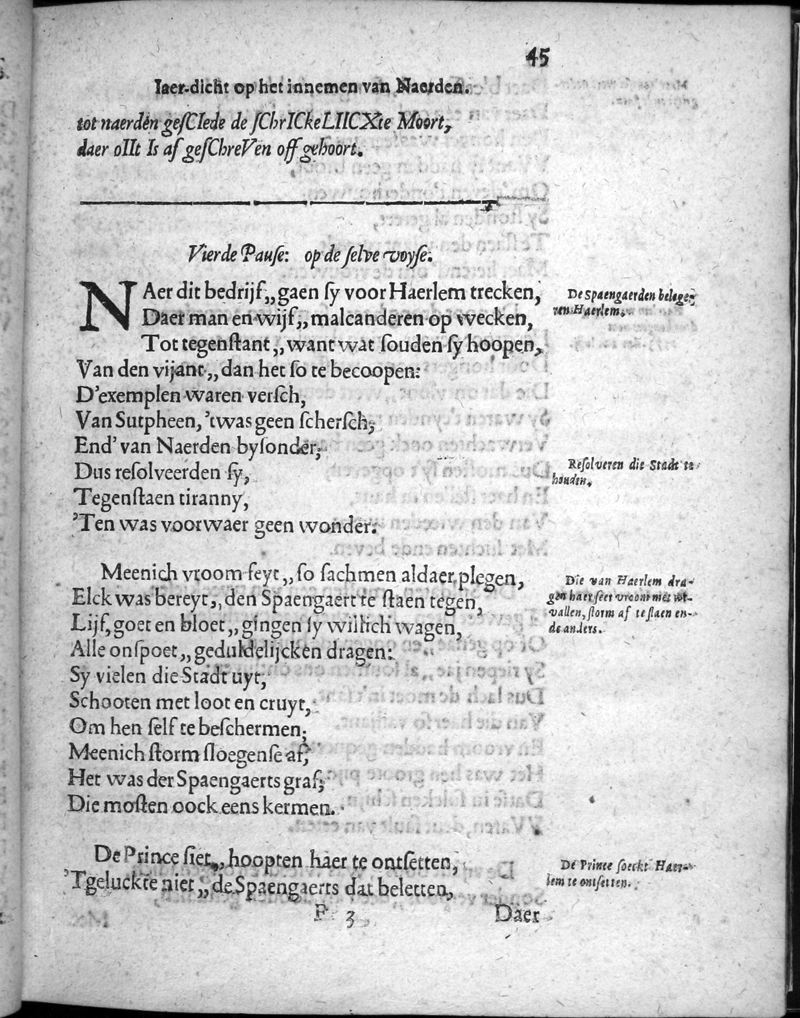 45
Iaer-dicht op het innemen van Naerden.
tot naerden geſCIede de ſChrICkeLIICXte Moort,
daer oIIt Is af geſChreVen off gehoort.
Vierde Pauſe: op de ſelve voyſe.
NAer dit bedrijf,, gaen ſy voor Haerlem trecken,
Daer man en wijf,, malcanderen op wecken,
Tot tegenſtant,, want wat ſouden ſy hoopen,
Van den vijant,, dan het ſo te becoopen:
D'exemplen waren verſch,
Van Sutpheen, 'twas geen ſcherſch,
End' van Naerden byſonder,
Dus reſolveerden ſy,
Tegenſtaen tiranny,
'Ten was voorwaer geen wonder.
De Spaengaerden belege-
ren Haerlem.
Reſolveren die Stadt te
houden.
Meenich vroom feyt,, ſo ſachmen aldaer plegen,
Elck was bereyt,, den Spaengaert te ſtaen tegen,
Lijf, goet en bloet,, gingen ſy willich wagen,
Alle onſpoet,, geduldelijcken dragen:
Sy vielen die Stadt uyt,
Schooten met loot en cruyt,
Om hen ſelf te beſchermen,
Meenich ſtorm ſloegenſe af,
Het was der Spaengaerts graf,
Die moſten oock eens kermen.
Die van Haerlem dra-
gen haer ſeer vroom met uyt-
vallen, ſtorm af te ſlaen en-
de anders.
De Prince ſiet,, hoopten haer te ontſetten,
'Tgeluckte niet,, de Spaengaerts dat beletten,
De Prince ſoeckt Haer-
lem te ontſetten.
F 3 Daer